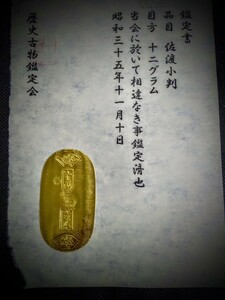 鑑定書
品目 佐渡小判
目方 十二グラム
当会に於いて相違なき事鑑定済也
昭和三十五年十一月十日
歴史古物鑑定会